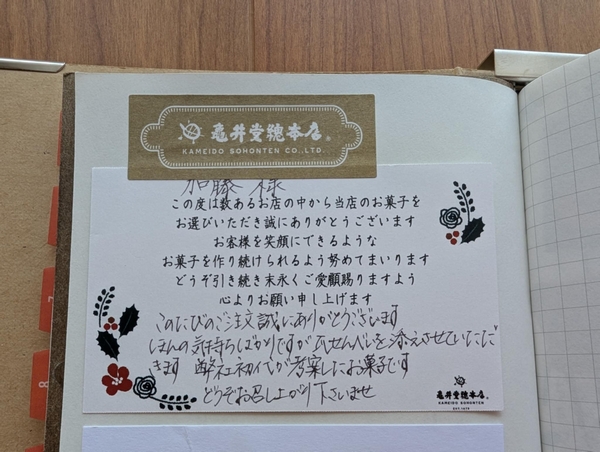 亀井堂總本店
KAMEIDO SOHONTEN CO., LTD.
加藤 様
この度は数あるお店の中から当店のお菓子を
お選びいただき誠にありがとうございます
お客様を笑顔にできるような
お菓子を作り続けられるよう努めてまいります
どうぞ引き続き末永くご愛顧賜りますよう
心よりお願い申し上げます
このたびのご注文誠にありがとうございます
ほんの気持ちばかりですが瓦せんべいを添えさせていただ
きます 弊社初代が考案したお菓子です
どうぞお召し上がり下さいませ
亀井堂總本店
KAMEIDO SOHONTEN
7
8